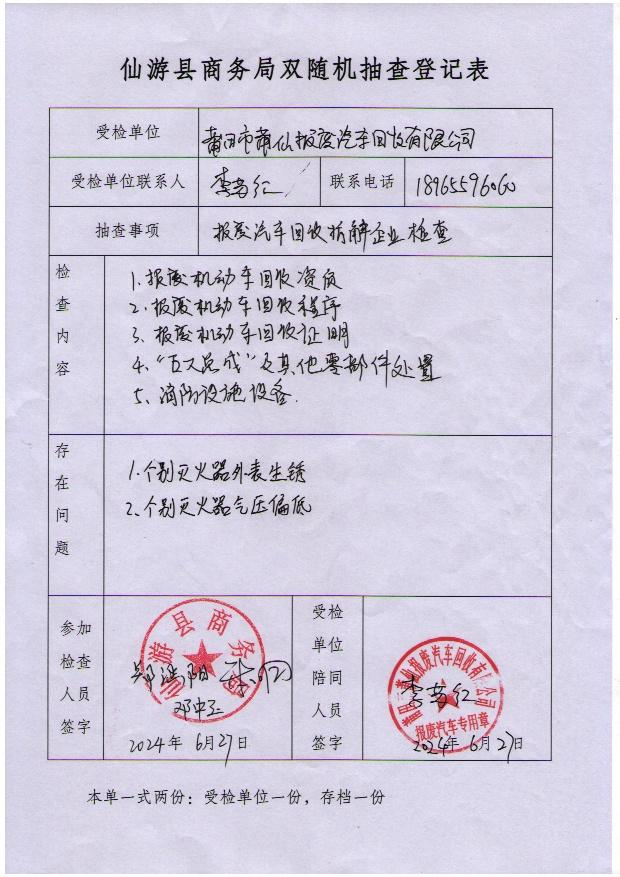 仙游县商务局双随机抽查登记表
受检单位 莆田市莆仙报废汽车回收有限公司
受检单位联系人 联系电话 18965596060
抽查事项 报废汽车回收拆解企业检查
检查内容
1.报废机动车回收资质
2.报废机动车回收程序
3、报废机动车回收证明
4、“五大总成”及其他零部件处置
5、消防设施设备.
存在问题
1.个别灭火器外表生锈
2.个别灭火器气压偏低
参加检查人员签字
仙游县商务局
2024年6月27日
受检单位陪同人员签字
莆田市莆仙报废汽车回收有限公司
报废汽车专用章
2024年6月27日
本单一式两份：受检单位一份，存档一份